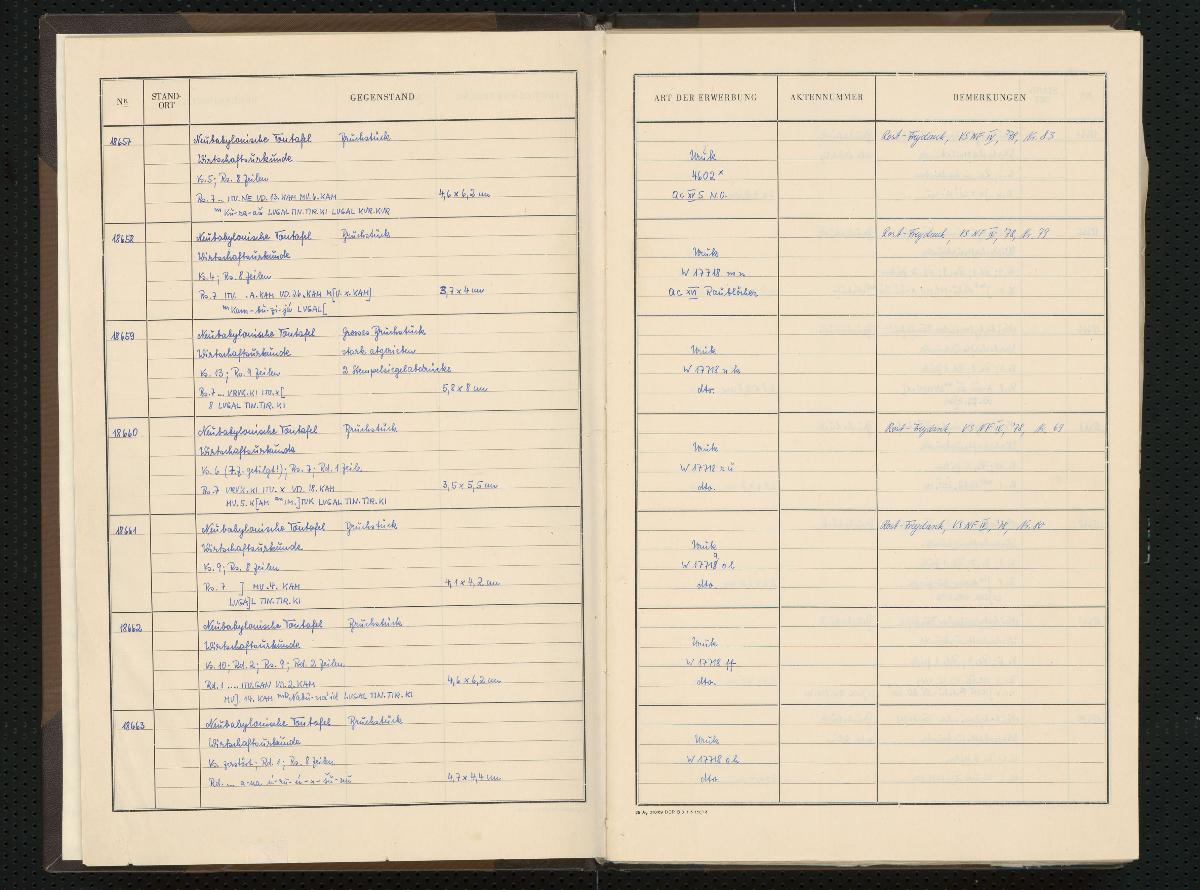 Nr. STAND-ORT GEGENSTAND
18657 Neubabylonische Tontafel Bruchstück
Wirtschaftsurkunde
Vs. 5; Rs. 8 Zeilen
Rs. 7 .. ITU.NE UD.13.KAM MU.6.KAM 4,6 x 6,2 cm
ᵐKu-ra-aš LUGAL TIN.TIR.KI LUGAL KUR.KUR
18658 Neubabylonische Tontafel Bruchstück
Wirtschaftsurkunde
Vs. 4; Rs. 8 Zeilen
Rs. 7 ITU. .A.KAM UD.26.KAM M[U.x.KAM] 3,7 x 4 cm
ᵐKam-bu-zi-ja LUGAL[
18659 Neubabylonische Tontafel Grosses Bruchstück
Wirtschaftsurkunde stark abgerieben
Vs. 13; Rs. 9 Zeilen 2 Stempelsiegelabdrücke
Rs. 7 ... URUK.KI ITU.x[ 5,8 x 8 cm
8 LUGAL TIN.TIR.KI
18660 Neubabylonische Tontafel Bruchstück
Wirtschaftsurkunde
Vs. 6 (7.Z. getilgt!); Rs. 7; Rd. 1 Zeile
Rs. 7 URUK.KI ITU.x UD.18.KAM 3,5 x 5,5 cm
MU.5.K[AM IM.]TUK LUGAL TIN.TIR.KI
18661 Neubabylonische Tontafel Bruchstück
Wirtschaftsurkunde
Vs. 9; Rs. 8 Zeilen
Rs. 7 ] MU.4.KAM 4,1 x 4,2 cm
LUGA]L TIN.TIR.KI
18662 Neubabylonische Tontafel Bruchstück
Wirtschaftsurkunde
Vs. 10; Rd. 2; Rs. 9; Rd. 2 Zeilen
Rd. 1 .... ITU.GAN UD.2.KAM 4,6 x 6,2 cm
MU]. 14.KAM Nabû-na'id LUGAL TIN.TIR.KI
18663 Neubabylonische Tontafel Bruchstück
Wirtschaftsurkunde
Vs. zerstört; Rd. 1; Rs. 8 Zeilen
Rd. ... a-na 4,7 x 4,4 cm
ART DER ERWERBUNG AKTENNUMMER BEMERKUNGEN
Rost-Freydank, VS NF IV, '78, Nr. 83
Uruk
4602 x
Qc XV 5 N.O.
Rost-Freydank, VS NF IV, '78, Nr. 79
Uruk
W 17718 m n
Qc XVI Raublöcher
Uruk
W 17718
dto.
Rost-Freydank, VS NF IV, '78, Nr. 69
Uruk
W 17718
dto.
Rost-Freydank, VS NF IV, '78, Nr. 10
Uruk
W 17718
dto.
Uruk
W 17718 ff
dto.
Uruk
W 17718
dto